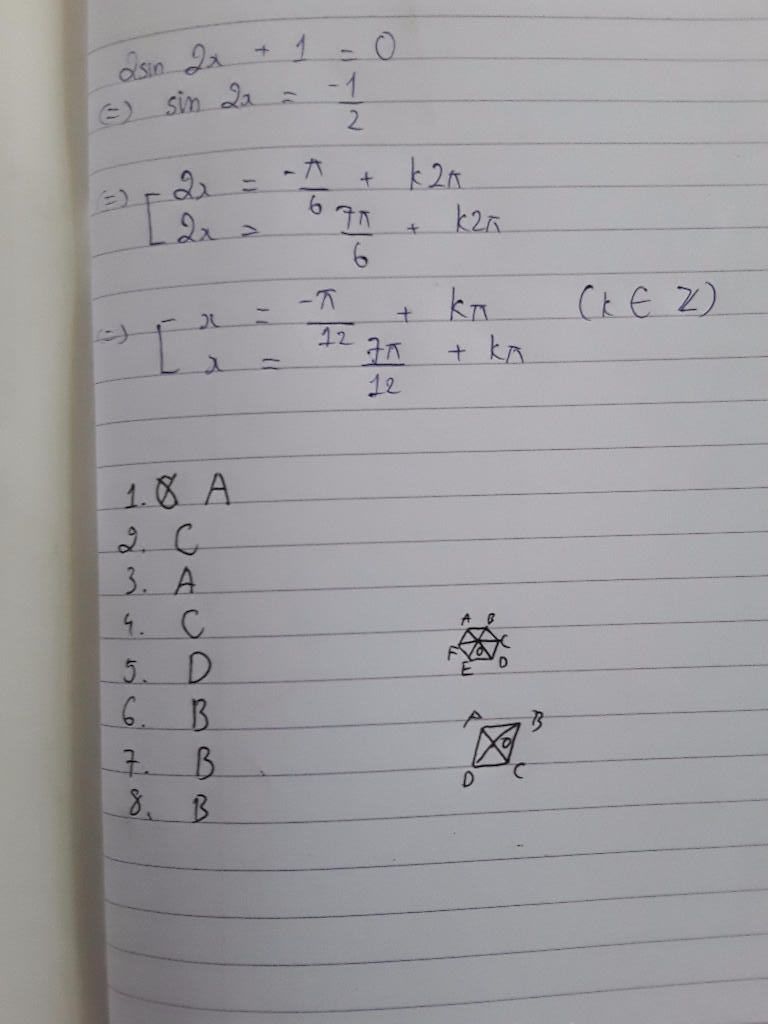 2sin 2x + 1 = 0
(=) sin 2x = -1/2
(=) [ 2x = -π/6 + k2π
2x = 7π/6 + k2π
(=) [ x = -π/12 + kπ (k ∈ Z)
x = 7π/12 + kπ
1. A
2. C
3. A
4. C
5. D
6. B
7. B
8. B
A B
F O C
E D
A B
O
D C